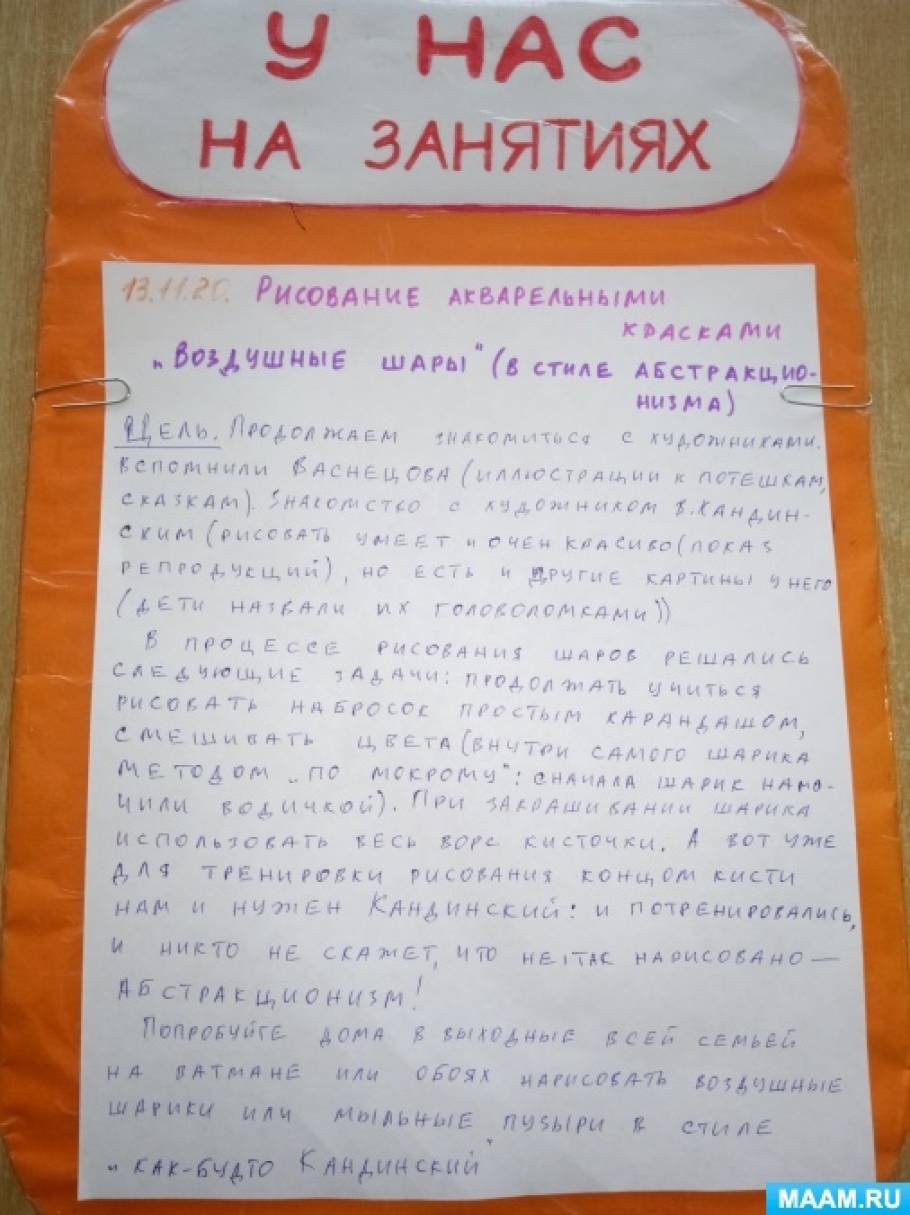 У НАС
НА ЗАНЯТИЯХ
13.11.20. Рисование акварельными
красками
„Воздушные шары" (в стиле абстракцио-
низма)
Цель. Продолжаем знакомиться с художниками.
Вспомнили Васнецова (иллюстрации к потешкам,
сказкам). Знакомство с художником В. Кандин-
ским (рисовать умеет и очен красиво (показ
репродукций), но есть и другие картины у него
(дети назвали их головоломками))
В процессе рисования шаров решались
следующие задачи: продолжать учиться
рисовать набросок простым карандашом,
смешивать цвета (внутри самого шарика
методом „по мокрому": сначала шарик намо-
чили водичкой). При закрашивании шарика
использовать весь ворс кисточки. А вот уже
для тренировки рисования концом кисти
нам и нужен Кандинский: и потренировались,
и никто не скажет, что не так нарисовано —
абстракционизм!
Попробуйте дома в выходные всей семьей
на ватмане или обоях нарисовать воздушные
шарики или мыльные пузыри в стиле
„как-будто Кандинский"
MAAM.RU